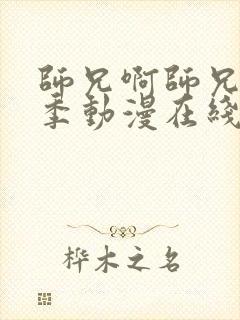 師兄啊師兄
季動漫在綫
桦木之名